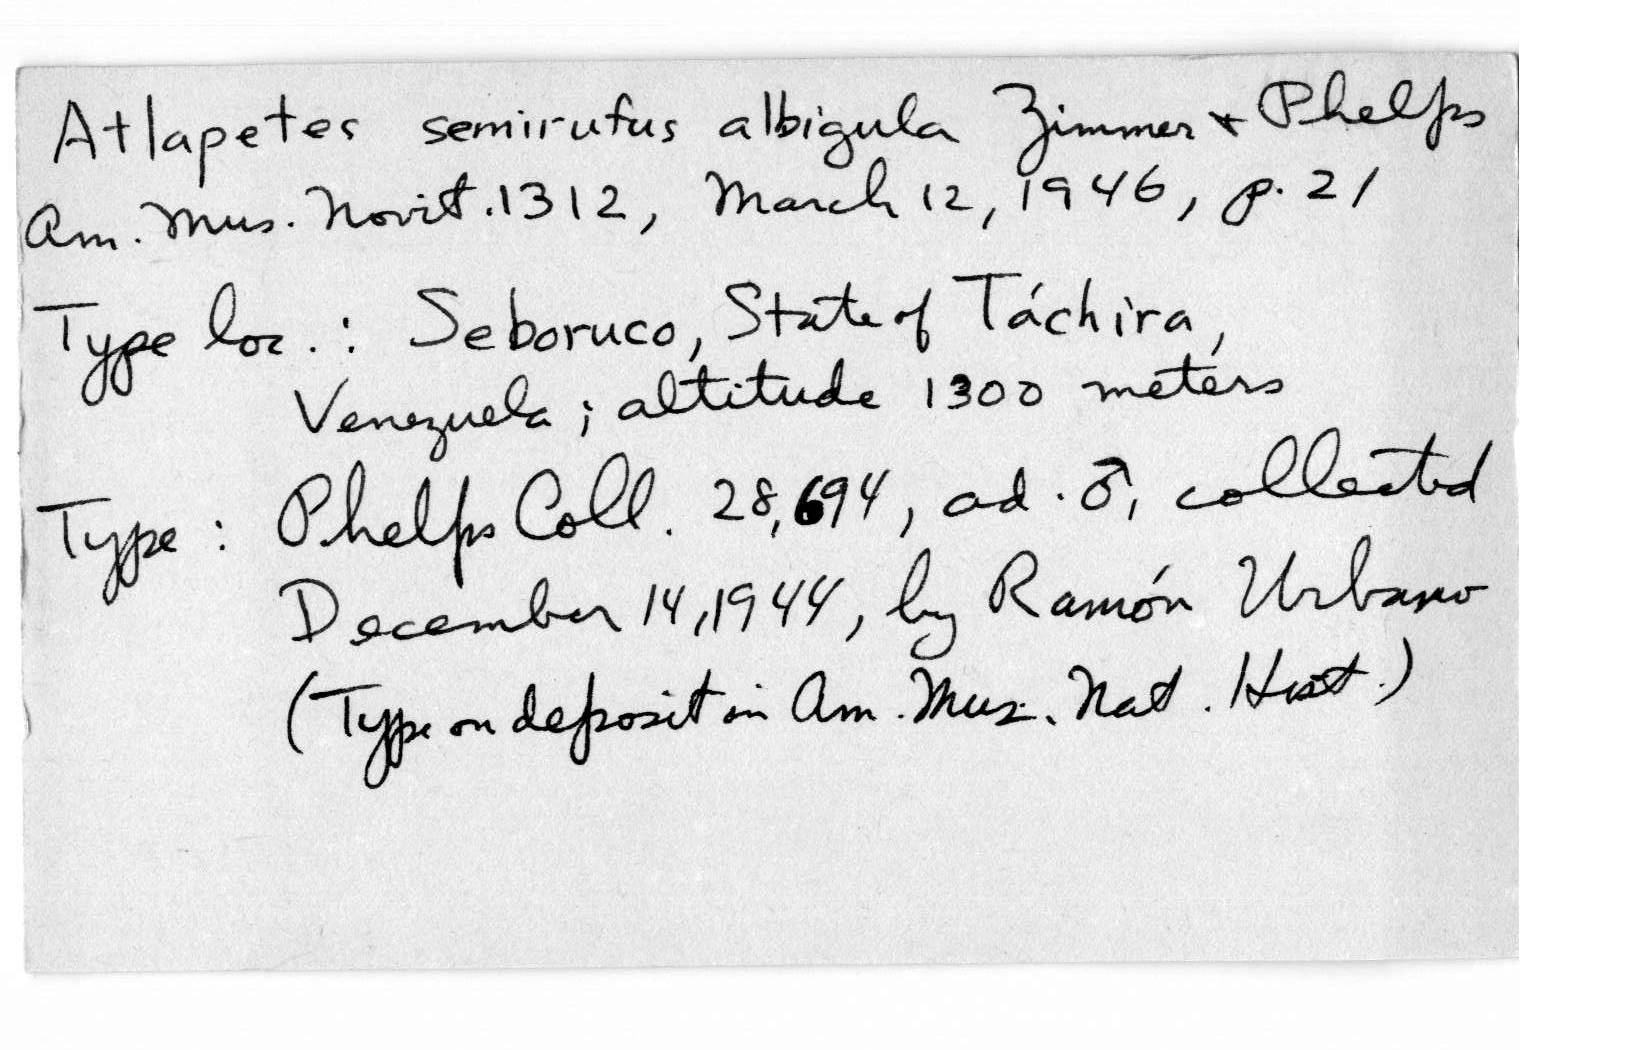 Atlapetes semirufus albigula Zimmer & Phelps
Am. Mus. Novit. 1312, March 12, 1946, p. 21
Type loc.: Seboruco, State of Táchira,
Venezuela; altitude 1300 meters
Type: Phelps Coll. 28,694, ad. ♂, collected
December 14, 1944, by Ramón Urbano
(Type on deposit in Am. Mus. Nat. Hist.)